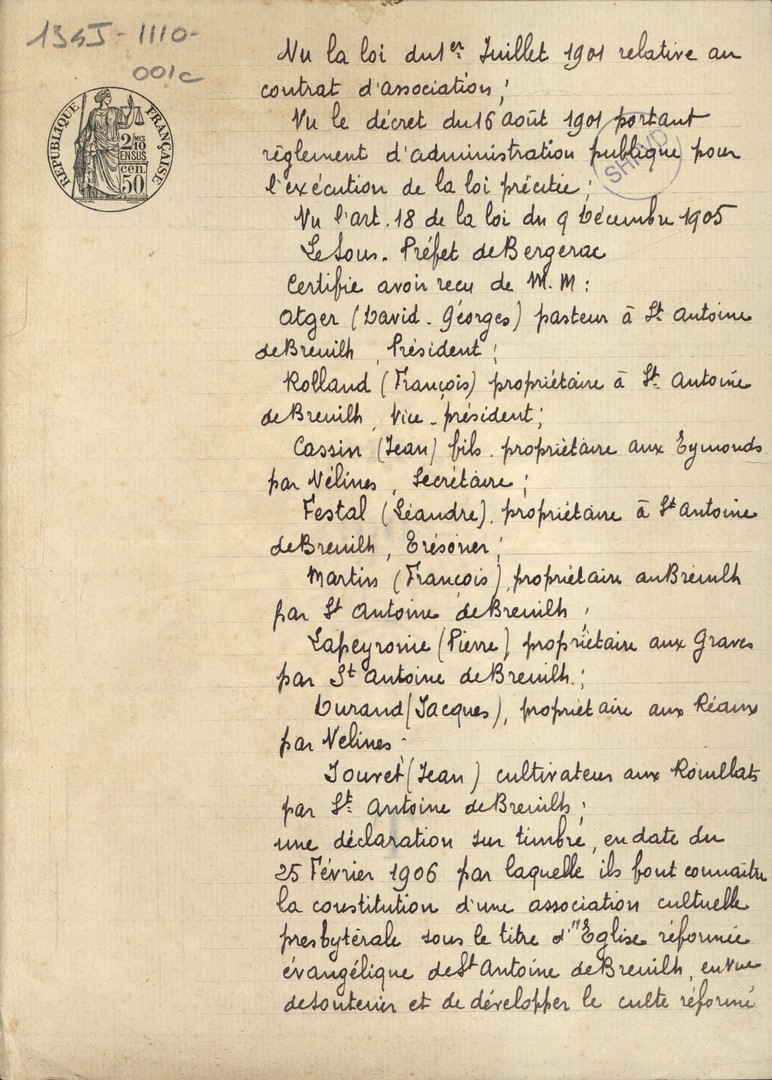 134J-1110-
001c
RÉPUBLIQUE FRANÇAISE
2/10 EN SUS
50
SHPVD
Vu la loi du 1er Juillet 1901 relative au
contrat d'association;
Vu le décret du 16 Août 1901 portant
règlement d'administration publique pour
l'exécution de la loi précitée;
Vu l'art. 18 de la loi du 9 Décembre 1905
Le Sous-Préfet de Bergerac
Certifie avoir recu de M.M:
Atger (David-Géorges) pasteur à St Antoine
de Breuilh, Président;
Rolland (François) propriétaire à St Antoine
de Breuilh, Vice-président;
Cassin (Jean) fils, propriétaire aux Eymonds
par Vélines, Secrétaire;
Festal (Léandre), propriétaire à St Antoine
de Breuilh, Trésorier;
Martin (François), propriétaire au Breuilh
par St Antoine de Breuilh;
Lapeyronie (Pierre), propriétaire aux Graves
par St Antoine de Breuilh;
Durand (Jacques), propriétaire aux Réaux
par Velines;
Jouret (Jean) cultivateur aux Rouillats
par St Antoine de Breuilh;
une déclaration sur timbré, en date du
25 Février 1906 par laquelle ils font connaître
la constitution d'une association cultuelle
presbytérale sous le titre d'"Eglise réformée
évangélique de St Antoine de Breuilh, en vue
de soutenir et de développer le culte réformé